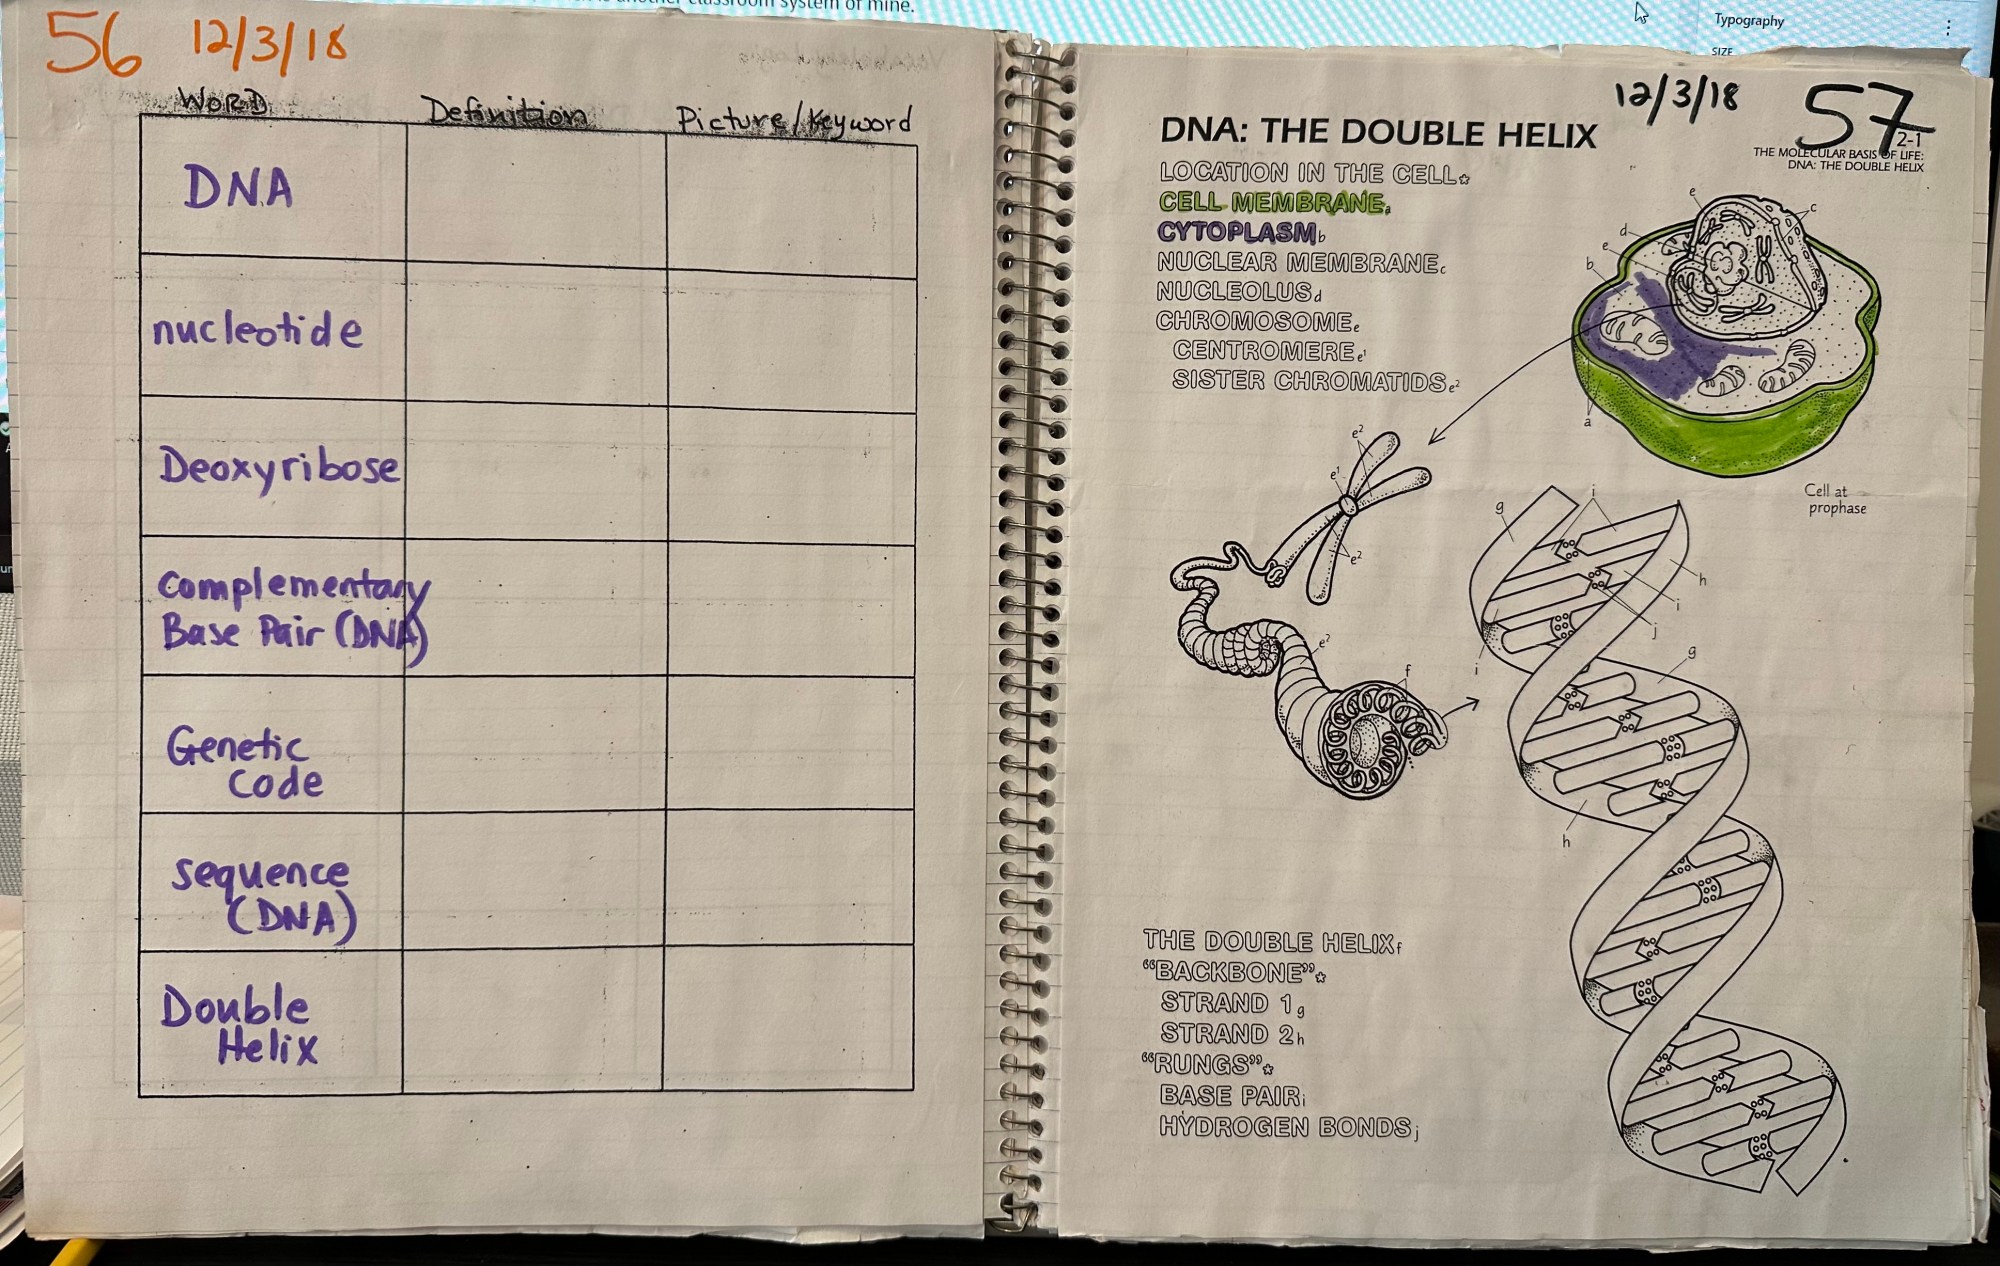 another classroom system of mine.
Typography
SIZE
56 12/3/18
WORD Definition Picture/Keyword
DNA
nucleotide
Deoxyribose
Complementary
Base Pair (DNA)
Genetic
Code
sequence
(DNA)
Double
Helix
12/3/18 57
DNA: THE DOUBLE HELIX
2-1
THE MOLECULAR BASIS OF LIFE:
DNA: THE DOUBLE HELIX
LOCATION IN THE CELL☆
CELL MEMBRANE a
CYTOPLASM b
NUCLEAR MEMBRANE c
NUCLEOLUS d
CHROMOSOME e
CENTROMERE e¹
SISTER CHROMATIDS e²
e
c
d
e
b
a
Cell at
prophase
e²
e¹
e²
e²
f
g
i
h
i
j
i
g
h
THE DOUBLE HELIX f
"BACKBONE"☆
STRAND 1 g
STRAND 2 h
"RUNGS"☆
BASE PAIR i
HYDROGEN BONDS j